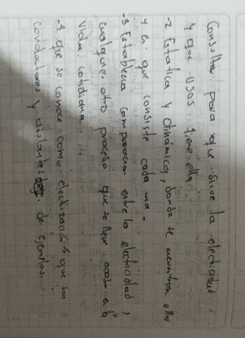 Consultar para que sirve la electricidad
y que usos tiene ella.
-2 Estatica y dinámica, donde se encuentra ella
y en que consiste cada una.
-3 Establezca comparación entre la electricidad y
cualquier otro proceso que se lleve acabo en la
vida cotidiana...
-4 que se conoce como electrización y que son
conductores y aislantes de ejemplos